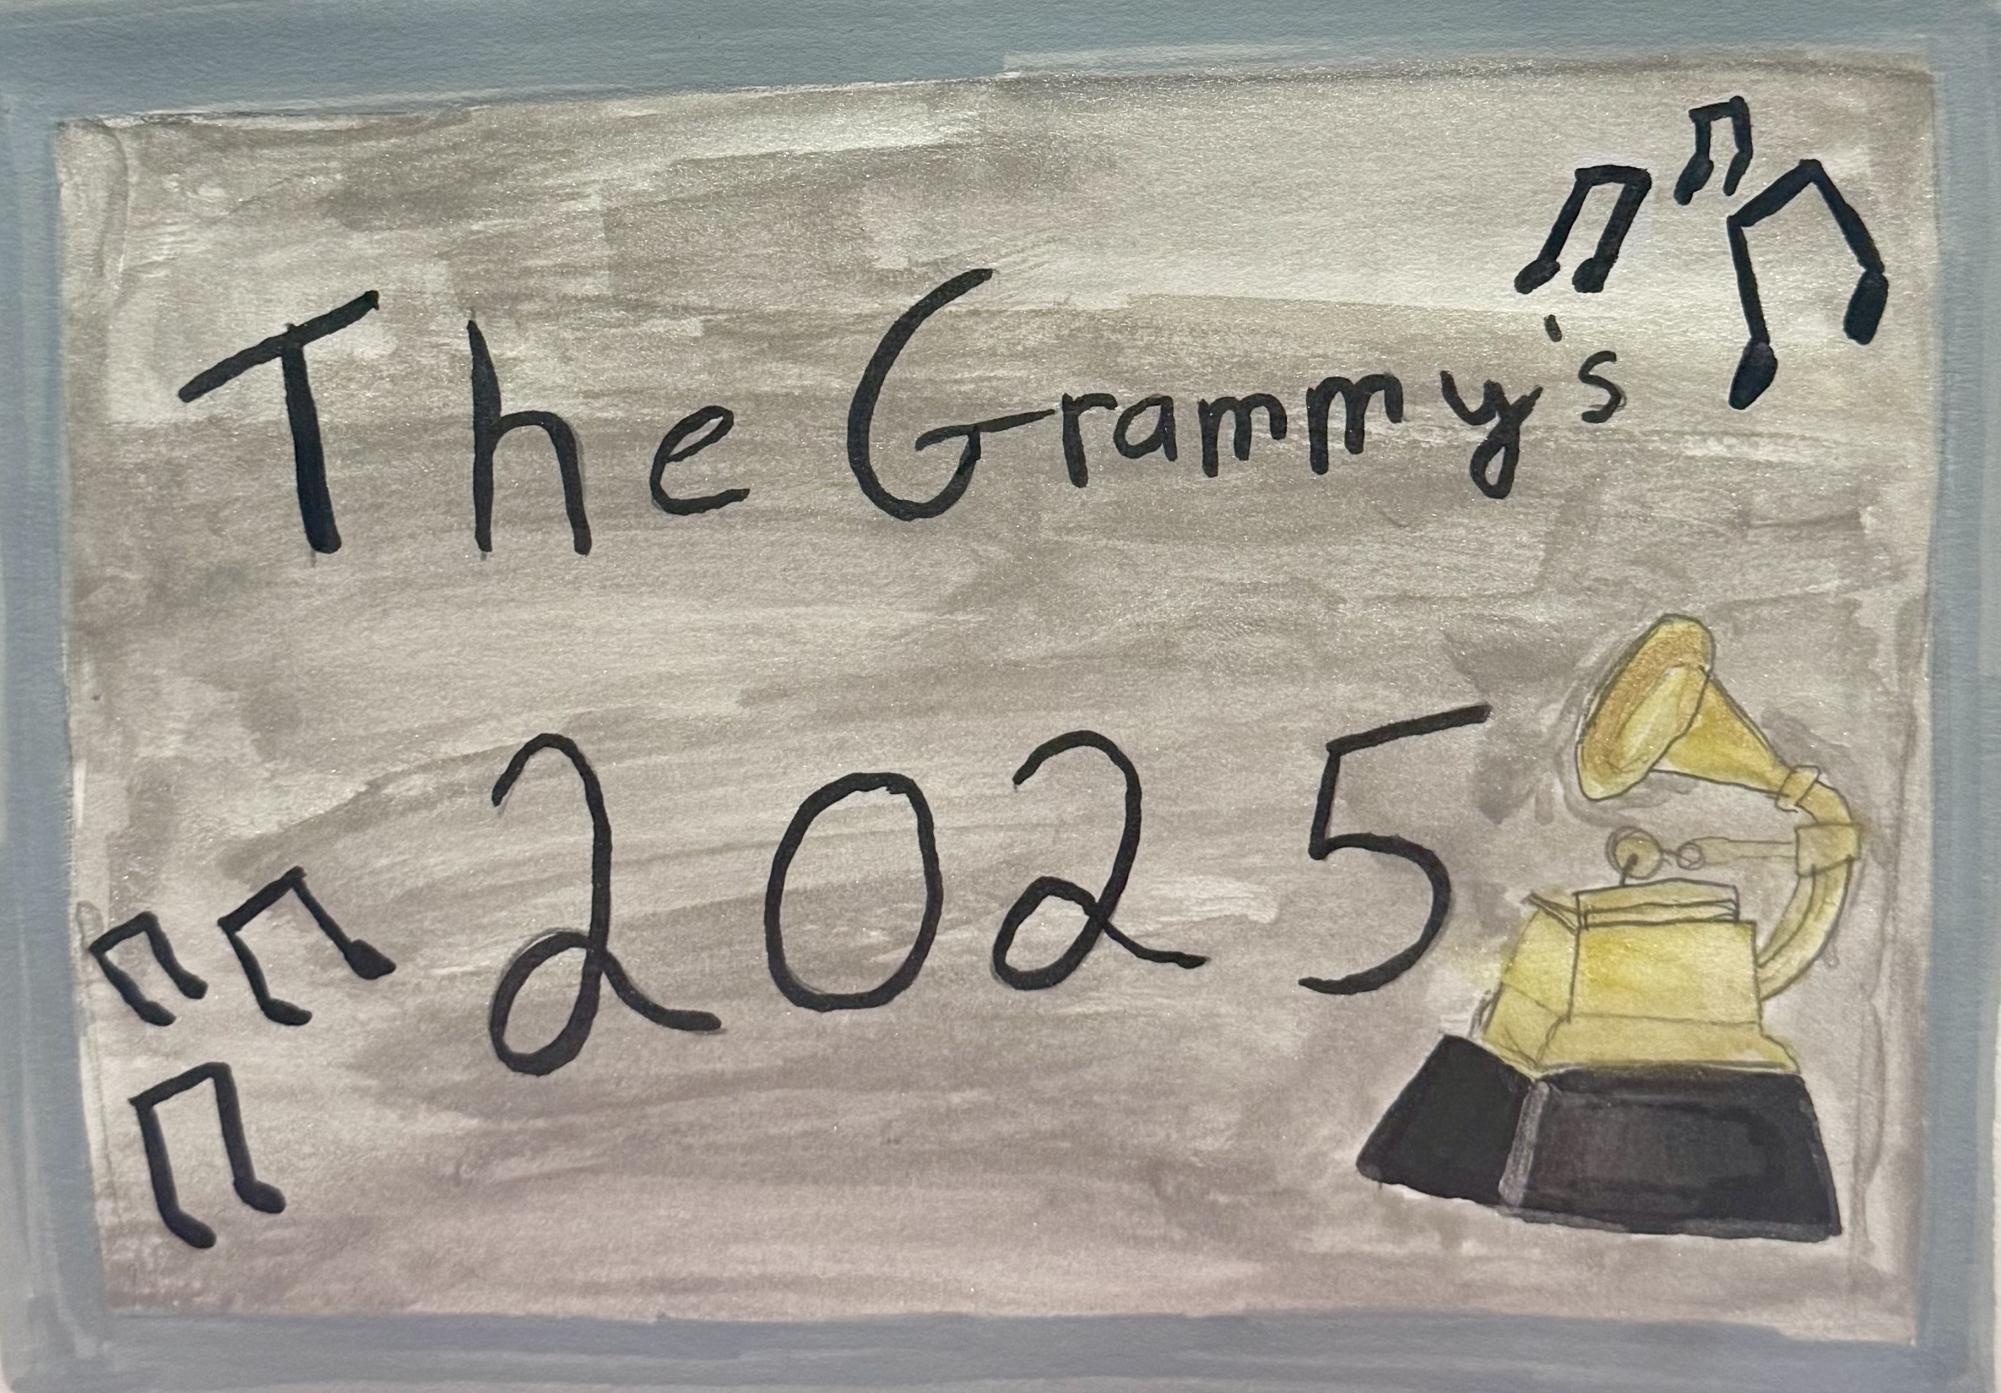 The Grammy's
2025